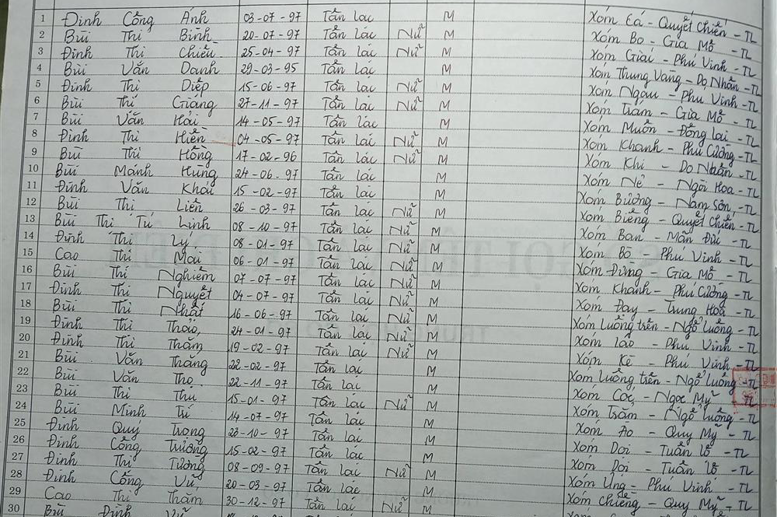 1 Đinh Công Ánh 03-07-97 Tân lạc M Xóm Cá - Quyết Chiến - TL
2 Bùi Thị Bình 20-07-97 Tân lạc Nữ M Xóm Bo - Gia Mô - TL
3 Đinh Thị Chiều 25-04-97 Tân lạc Nữ M Xóm Giác - Phú Vinh - TL
4 Bùi Văn Doanh 29-03-95 Tân lạc M Xóm Thung Vang - Do Nhân - TL
5 Đinh Thị Diệp 15-06-97 Tân lạc Nữ M Xóm Ngau - Phú Vinh - TL
6 Bùi Thị Giang 27-11-97 Tân lạc Nữ M Xóm Trám - Gia Mô - TL
7 Bùi Văn Hải 14-05-97 Tân lạc M Xóm Muôn - Đông lai - TL
8 Đinh Thị Hiền 04-05-97 Tân lạc Nữ M Xóm Khanh - Phú Cường - TL
9 Bùi Thị Hồng 17-02-96 Tân lạc Nữ M Xóm Khi - Do Nhân - TL
10 Bùi Mạnh Hùng 24-06-97 Tân lạc M Xóm Nè - Ngòi Hoa - TL
11 Đinh Văn Khải 15-02-97 Tân lạc M Xóm Bương - Nam Sơn - TL
12 Bùi Thị Liên 26-03-97 Tân lạc Nữ M Xóm Biêng - Quyết Chiến - TL
13 Bùi Thị Tú Linh 08-10-97 Tân lạc Nữ M Xóm Ban - Mãn Đức - TL
14 Đinh Thị Ly 08-01-97 Tân lạc Nữ M Xóm Bô - Phú Vinh - TL
15 Cao Thị Mai 06-01-97 Tân lạc Nữ M Xóm Đừng - Gia Mô - TL
16 Bùi Thị Nghiệm 07-07-97 Tân lạc Nữ M Xóm Khanh - Phú Cường - TL
17 Đinh Thị Nguyệt 04-07-97 Tân lạc Nữ M Xóm Đay - Trung Hoà - TL
18 Bùi Thị Nhất 16-06-97 Tân lạc Nữ M Xóm Luông trên - Ngổ luông - TL
19 Đinh Thị Thảo 24-01-97 Tân lạc Nữ M Xóm lao - Phú Vinh - TL
20 Đinh Thị Thắm 19-02-97 Tân lạc Nữ M Xóm Kè - Phú Vinh - TL
21 Bùi Văn Thắng 22-02-97 Tân lạc M Xóm luông trên - Ngổ luông - TL
22 Bùi Văn Thọ 22-11-97 Tân lạc M Xóm Cóc - Ngọc Mỹ - TL
23 Bùi Thị Thu 15-01-97 Tân lạc Nữ M Xóm Trăm - Ngổ luông - TL
24 Bùi Minh Tú 14-07-97 Tân lạc M Xóm Ào - Quy Mỹ - TL
25 Đinh Quý Trọng 28-10-97 Tân lạc M Xóm Dọi - Tuân lộ - TL
26 Đinh Công Trường 15-02-97 Tân lạc M Xóm Dọi - Tuân lộ - TL
27 Đinh Thị Tường 08-09-97 Tân lạc Nữ M Xóm Ưng - Phú Vinh - TL
28 Đinh Công Vũ 20-03-97 Tân lạc M Xóm Chiềng - Quy Mỹ - TL
29 Cao Thị Thắm 30-12-97 Tân lạc Nữ M
30 Bùi Đình